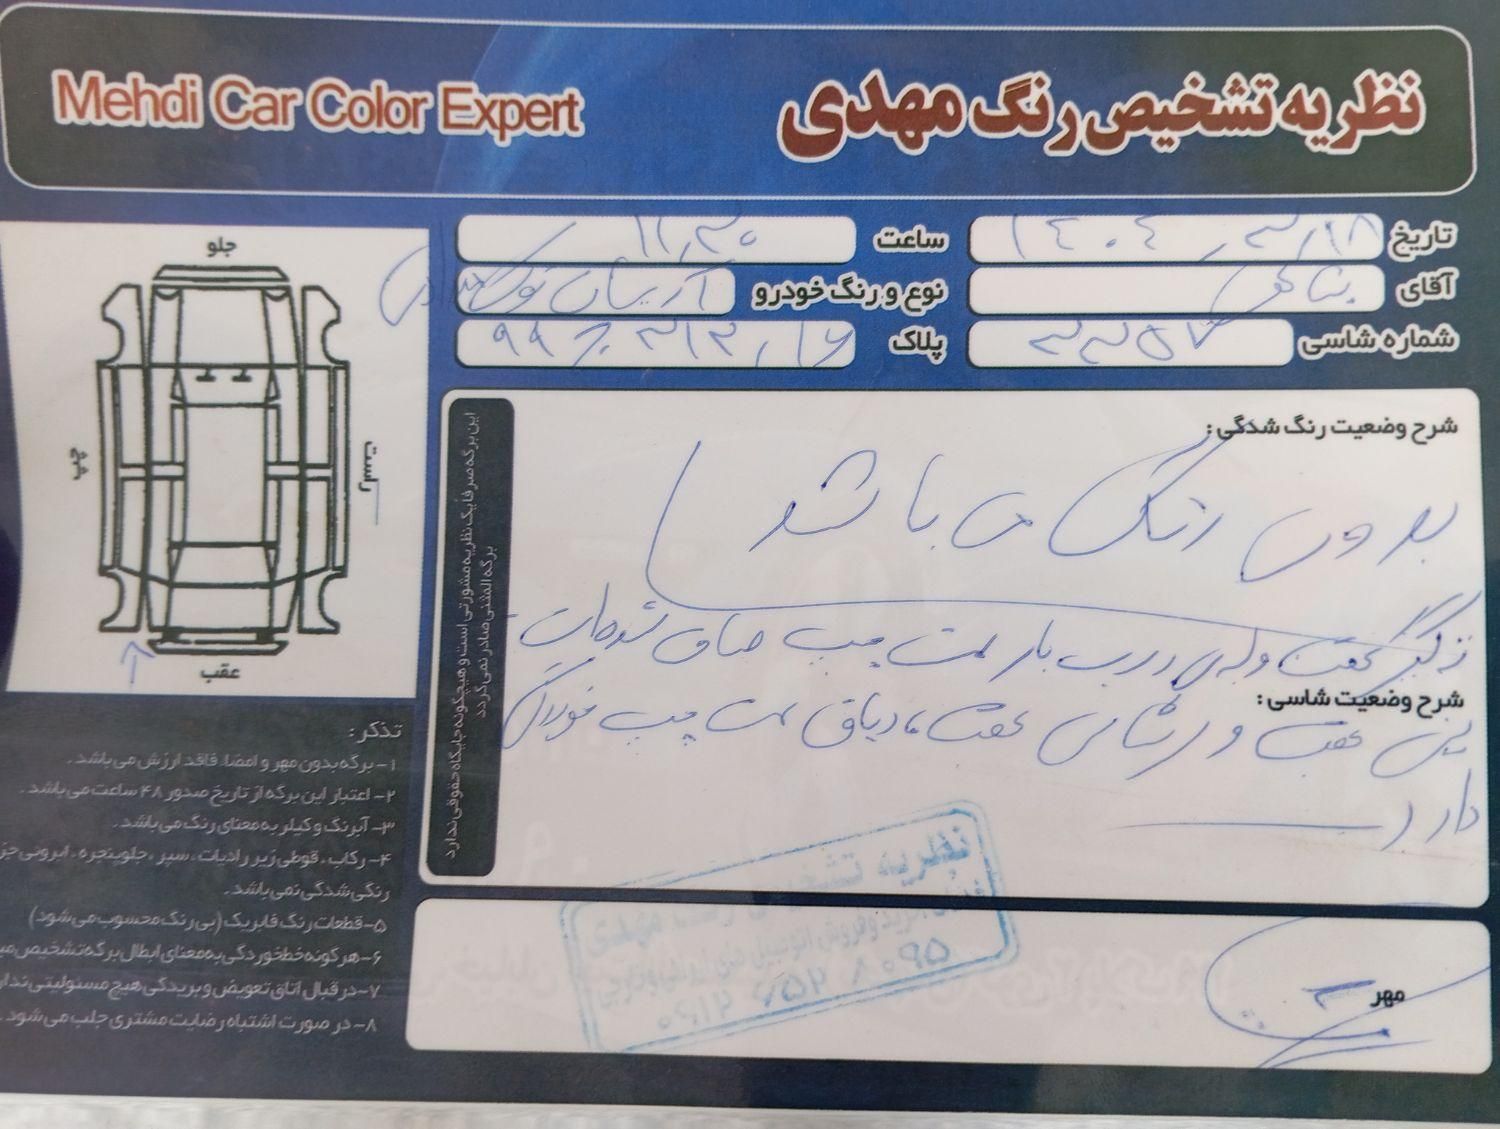 Mehdi Car Color Expert
نظریه تشخیص رنگ مهدی
تاریخ ۱۴۰۴,۳,۱۸
ساعت ۱۱,۳۰
آقای
نوع و رنگ خودرو آریسان نوک مدادی
شماره شاسی
پلاک
جلو
راست
چپ
عقب
شرح وضعیت رنگ شدگی:
بدون رنگ می باشد
گلگیر عقب و لبه ی درب بار سمت چپ صافی
شرح وضعیت شاسی:
سینی عقب و شاسی عقب سمت چپ خوردگی
دارد
این برگه صرفا یک نظریه مشورتی است و هیچگونه جایگاه حقوقی ندارد
برگه المثنی صادر نمی گردد
تذکر:
۱- برگه بدون مهر و امضا، فاقد ارزش می باشد.
۲- اعتبار این برگه از تاریخ صدور ۴۸ ساعت می باشد.
۳- آبرنگ و کیلر به معنای رنگ می باشد.
۴- رکاب، قوطی زیر رادیات، سپر، جلوپنجره، ابرونی جز
رنگی شدگی نمی باشد.
۵- قطعات رنگ فابریک (بی رنگ محسوب می شود)
۶- هرگونه خط خوردگی به معنای ابطال برگه تشخیص می
۷- در قبال اتاق تعویض و بریدگی هیچ مسئولیتی ندار
۸- در صورت اشتباه رضایت مشتری جلب می شود.
نظریه تشخیص رنگ مهدی
مهر